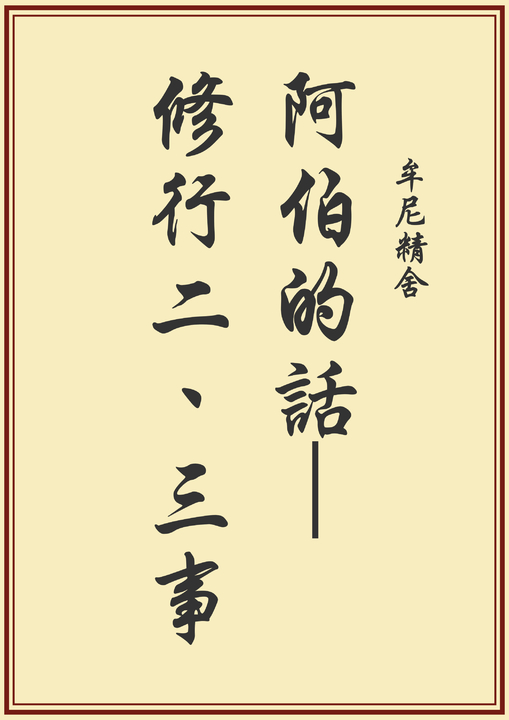 牟尼精舍
阿伯的話──
修行二、三事